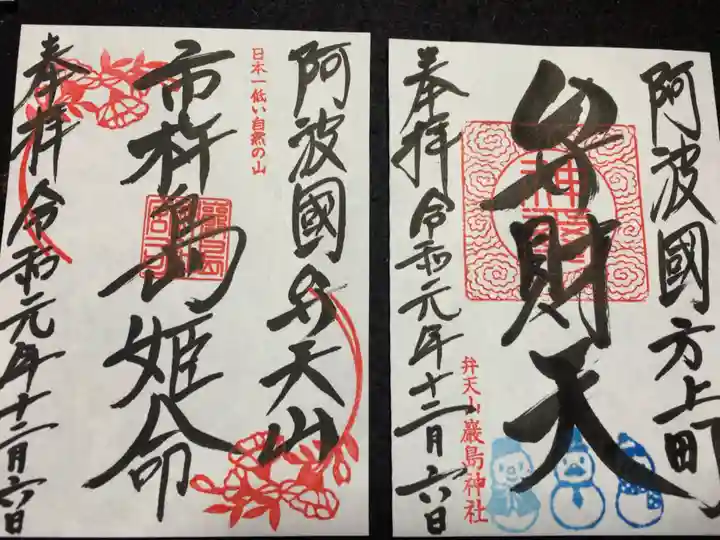 阿波國弁天山
日本一低い自然の山
市杵島姫命
奉拝 令和元年十二月六日
阿波國方上町
弁財天
弁天山 巖島神社
奉拝 令和元年十二月六日